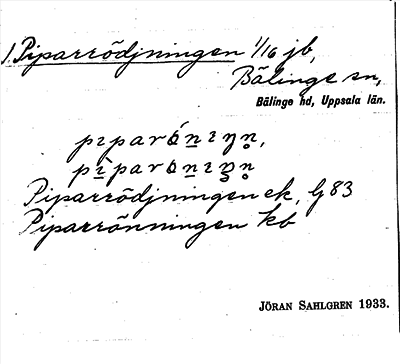 1. Piparrödjningen 1/16 jb,
Bälinge sn,
Bälinge hd, Uppsala län.
Piparrödjningen ek, G 83
Piparrönningen kb
JÖRAN SAHLGREN 1933.